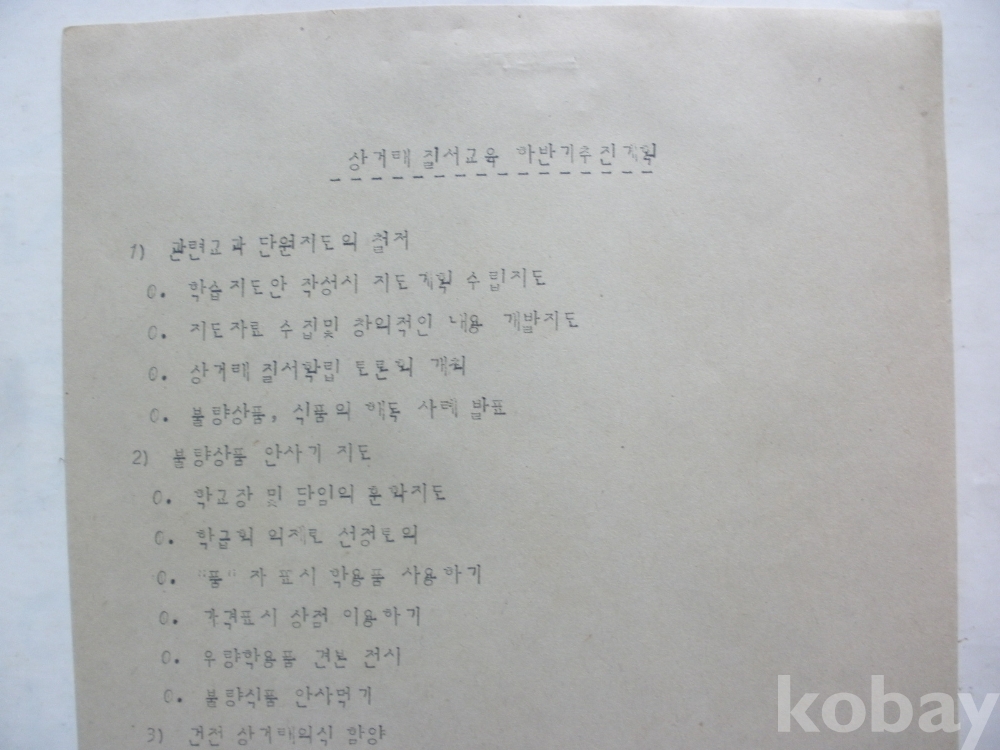 상거래 질서교육 하반기추진계획
1) 관련교과 단원지도의 철저
0. 학습지도안 작성시 지도계획 수립지도
0. 지도자료 수집및 창의적인 내용 개발지도
0. 상거래 질서확립 토론회 개최
0. 불량상품, 식품의 해독 사례 발표
2) 불량상품 안사기 지도
0. 학교장 및 담임의 훈화지도
0. 학급회 의제로 선정토의
0. "품" 자 표시 학용품 사용하기
0. 가격표시 상점 이용하기
0. 우량학용품 견본 전시
0. 불량식품 안사먹기
3) 건전 상거래의식 함양
kobay